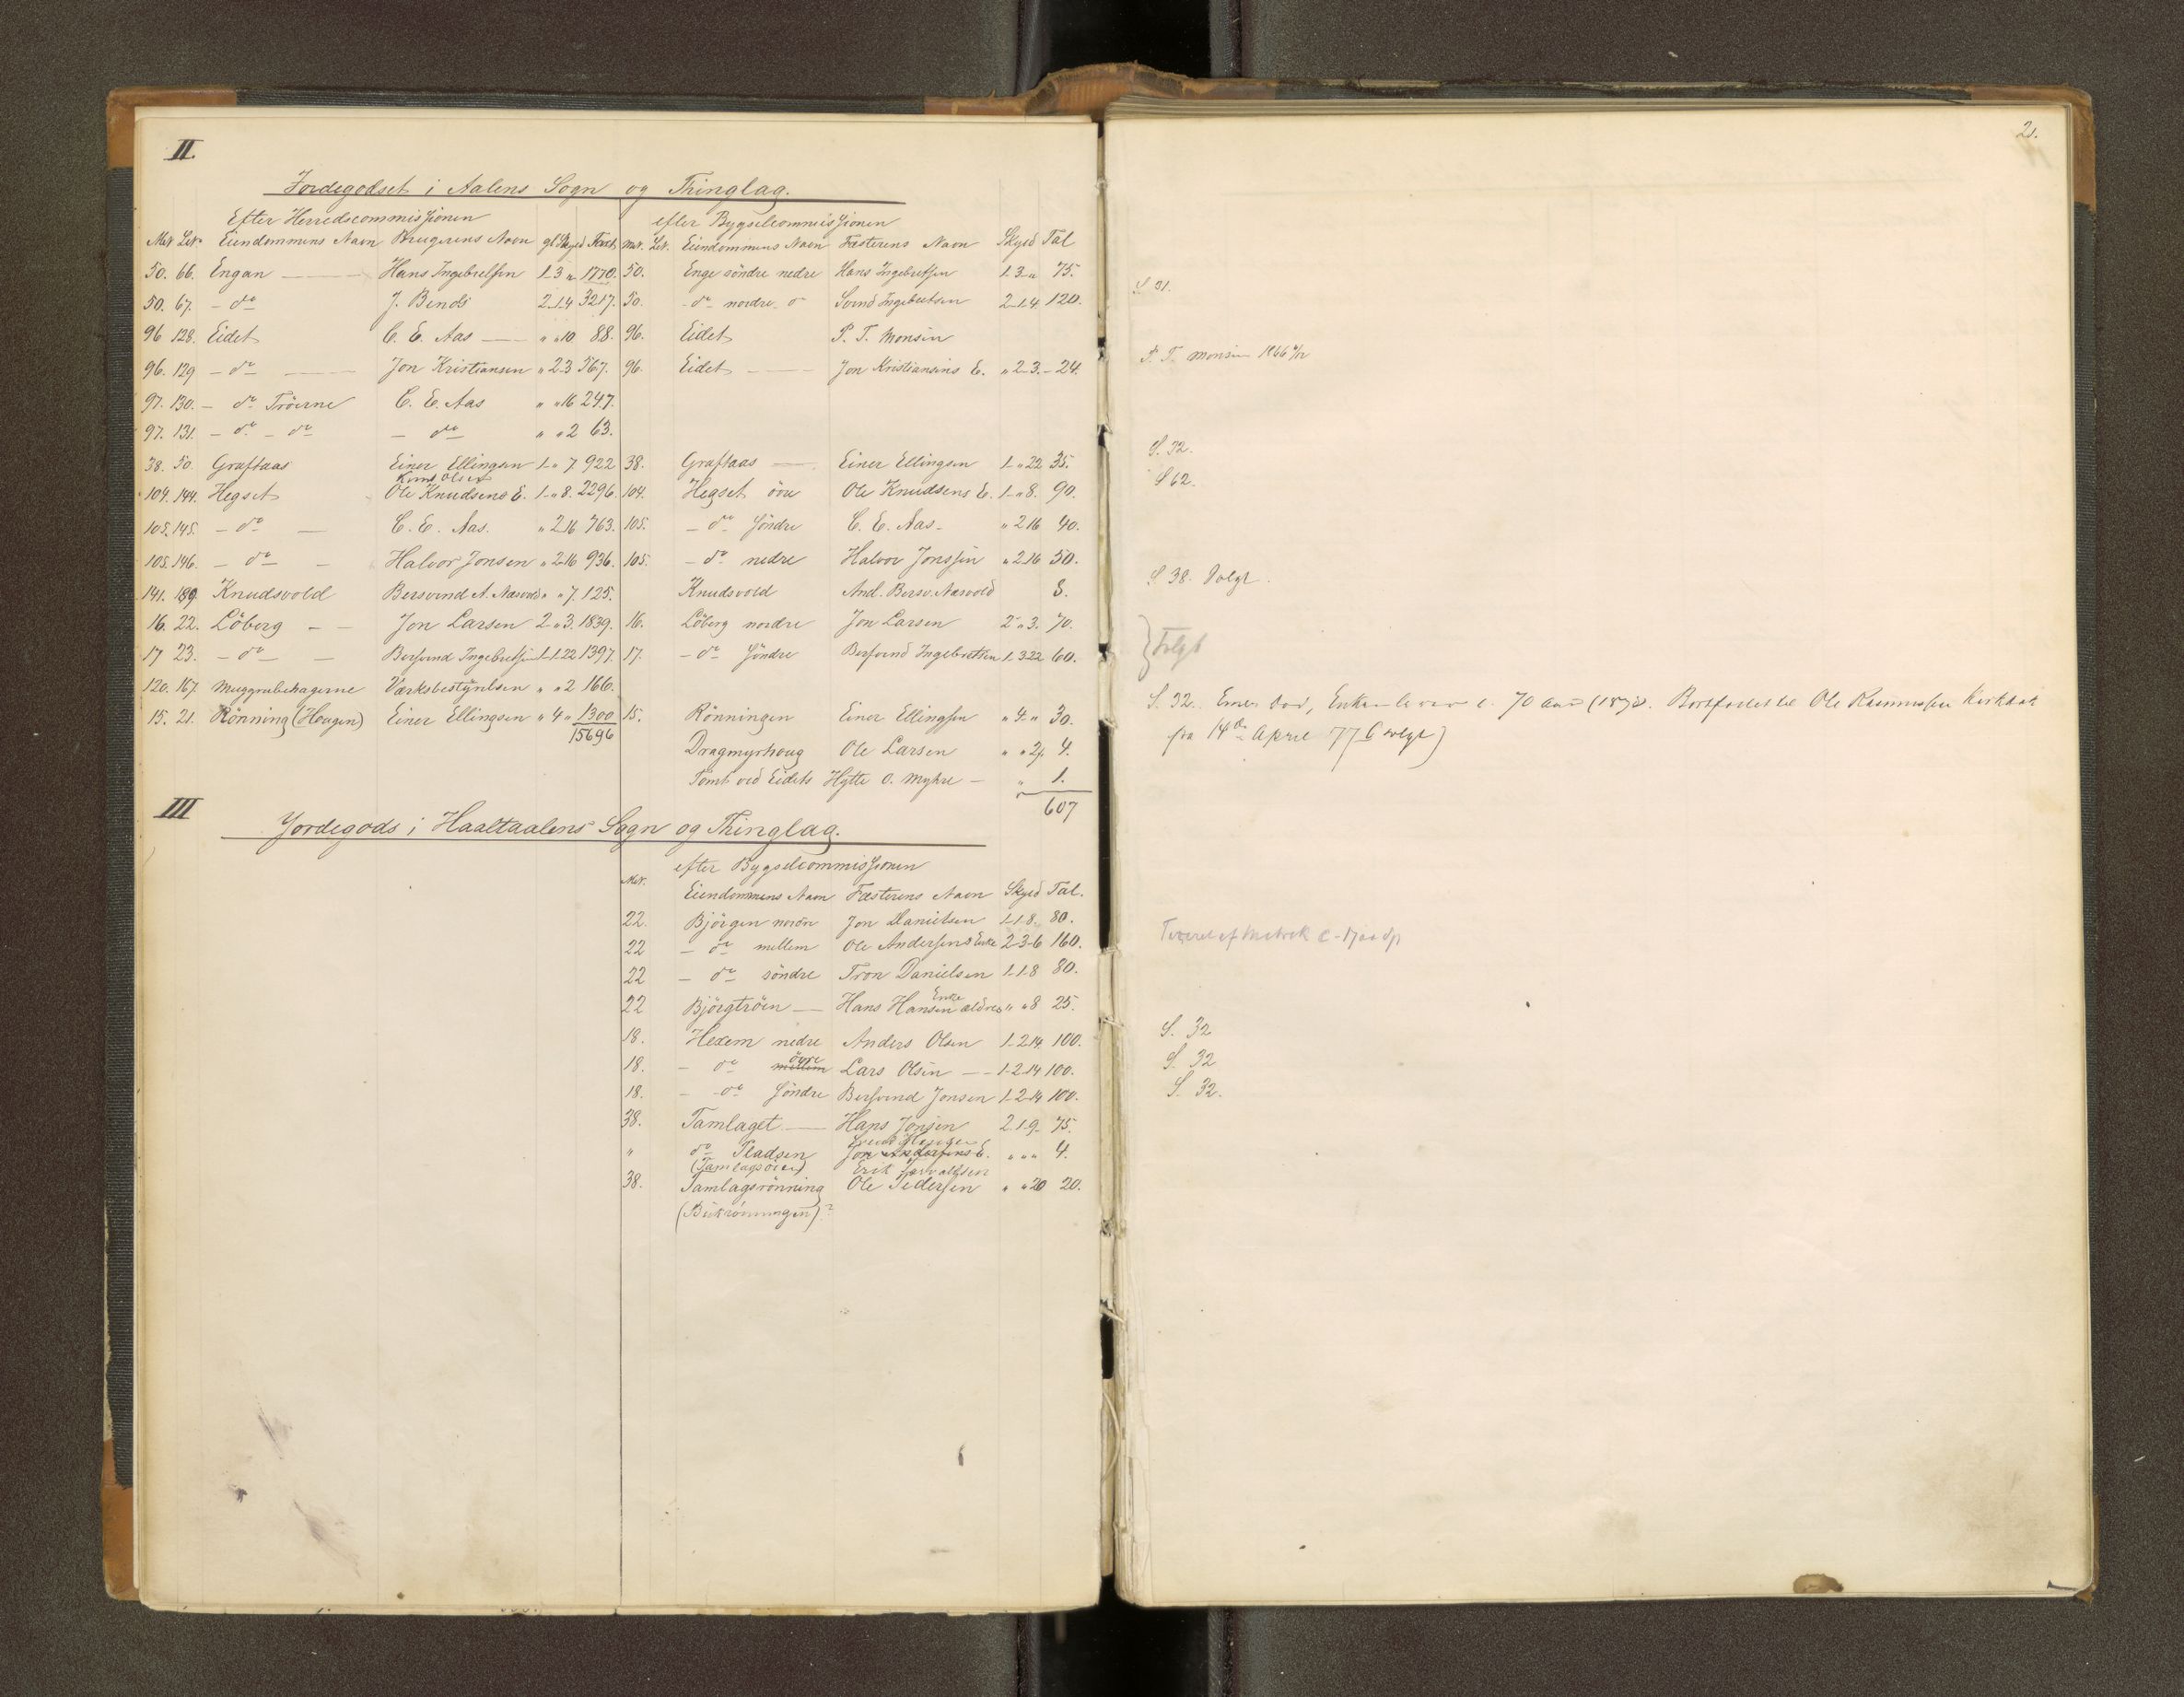 II
Jordegodset i Aalens Sogn og Thinglag.
Efter Herredscommissionen efter Bygselcommissionen
Mat. Løb. Eiendommens Navn Brugerens Navn gl Skyld Taxt. Mat. Løb. Eiendommens Navn Fæsterens Navn Skyld Tal
50. 66. Engan Hans Ingebretsen 1-3 " 1770. 50. Enge söndre nedre Hans Ingebretsen 1-3-" 75.
50. 67. - do J. Bendi 2-1-4 3217. 50. - do nordre do Svend Ingebretsen 2-1-4. 120.
96 128. Eidet C. E. Aas " " 10 88. 96. Eidet P. T. Monsen
96. 129 - do Jon Kristiansen " 2-3 567. 96. Eidet Jon Kristiansens E. " 2-3. - 24.
97. 130. - do Tröerne C. E. Aas " " 16 247.
97. 131. - do - do - do " " 2 63.
38. 50. Graftaas Einer Ellingsen 1-" 7 922 38. Graftaas Einer Ellingsen 1-" 22 35.
Knud Olsen
104. 144. Hegset Ole Knudsens E. 1-" 8. 2296. 104. Hegset övre Ole Knudsens E. 1-" 8. 90.
105. 145. - do C. E. Aas. " 2 16 763. 105. - do Söndre C. E. Aas - " 2 16 40.
105. 146. - do - Halvor Jonsen " 2-16 936. 105. - do nedre Halvor Jonssen " 2-16 50.
141. 189. Knudsvold Bersvend A. Næsvold " " 7. 125. Knudsvold And. Bersv. Næsvold 8.
16. 22. Löberg - - Jon Larsen 2 " 3. 1839. 16. Löberg nordre Jon Larsen 2 " 3. 70.
17 23. - do - Bersvend Ingebretsen 1-1-22 1397. 17. - do Söndre Bersvend Ingebretsen 1-3 22 60.
120. 167. Muggrubehagerne Værksbestyrelsen " " 2 166.
15. 21. Rönning (Hougen) Einer Ellingsen " 4 " 1300 15. Rönningen Einer Ellingsen " 4 " 30.
15696
Dragmyrhoug Ole Larsen " " 2 4.
Tomt ved Eidets Hytte O. Myhre - " 1.
607
III
Jordegods i Haaltaalens Sogn og Thinglag.
efter Bygselcommissionen
Mat. Eiendommens Navn Fæsterens Navn Skyld Tal.
22. Bjørgen nordre Jon Danielsen 1-1-8. 80.
22 - do mellem Ole Andersens Enke 2-3-6 160.
22 - do söndre Tron Danielsen 1-1-8 80.
Enke
22 Bjørgtröen Hans Hansen ældres " " 8 25.
18. Hexem nedre Anders Olsen 1-2-14 100.
övre
18. - do mellem Lars Olsen 1-2-14 100.
18. - do Söndre Bersvend Jonsen 1-2-14 100.
38. Tamlaget Hans Jonsen 2-1-9. 75.
" do Pladsen Jon Andersens E. " " " 4.
(Tamlagsöien) Erik
38. Tamlagsrönning Ole Pedersen " " 20 20.
(Bækrönningen)?
2.
S 31.
P. T. Monsen 1866
S. 32.
S 62.
S 38. Solgt.
} Solgt
S. 32. Einer död, Enken 70 Aar Bortfæstet til Ole Rasmussen
fra 14de April 77 Solgt)
S. 32
S. 32
S. 32.